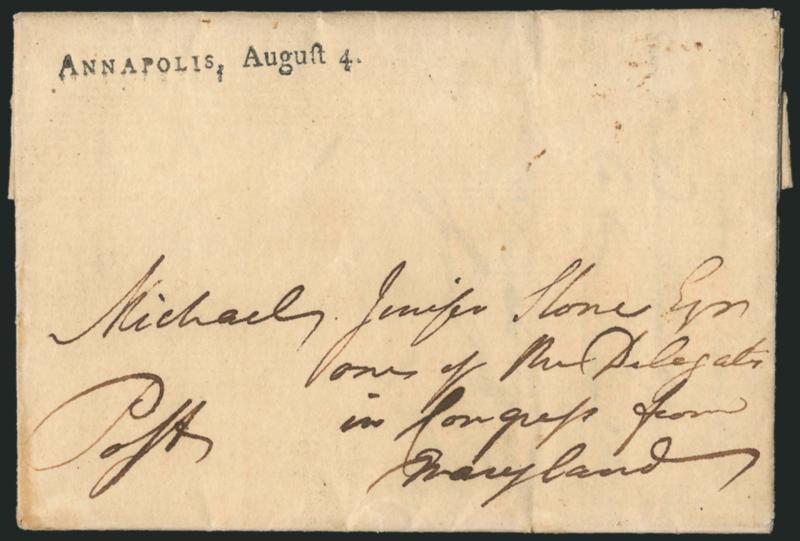 ANNAPOLIS, Auguſt 4.
Michael Jenifer Stone Esqr
one of the Delegates
in Congreſs from
Maryland
Poſt